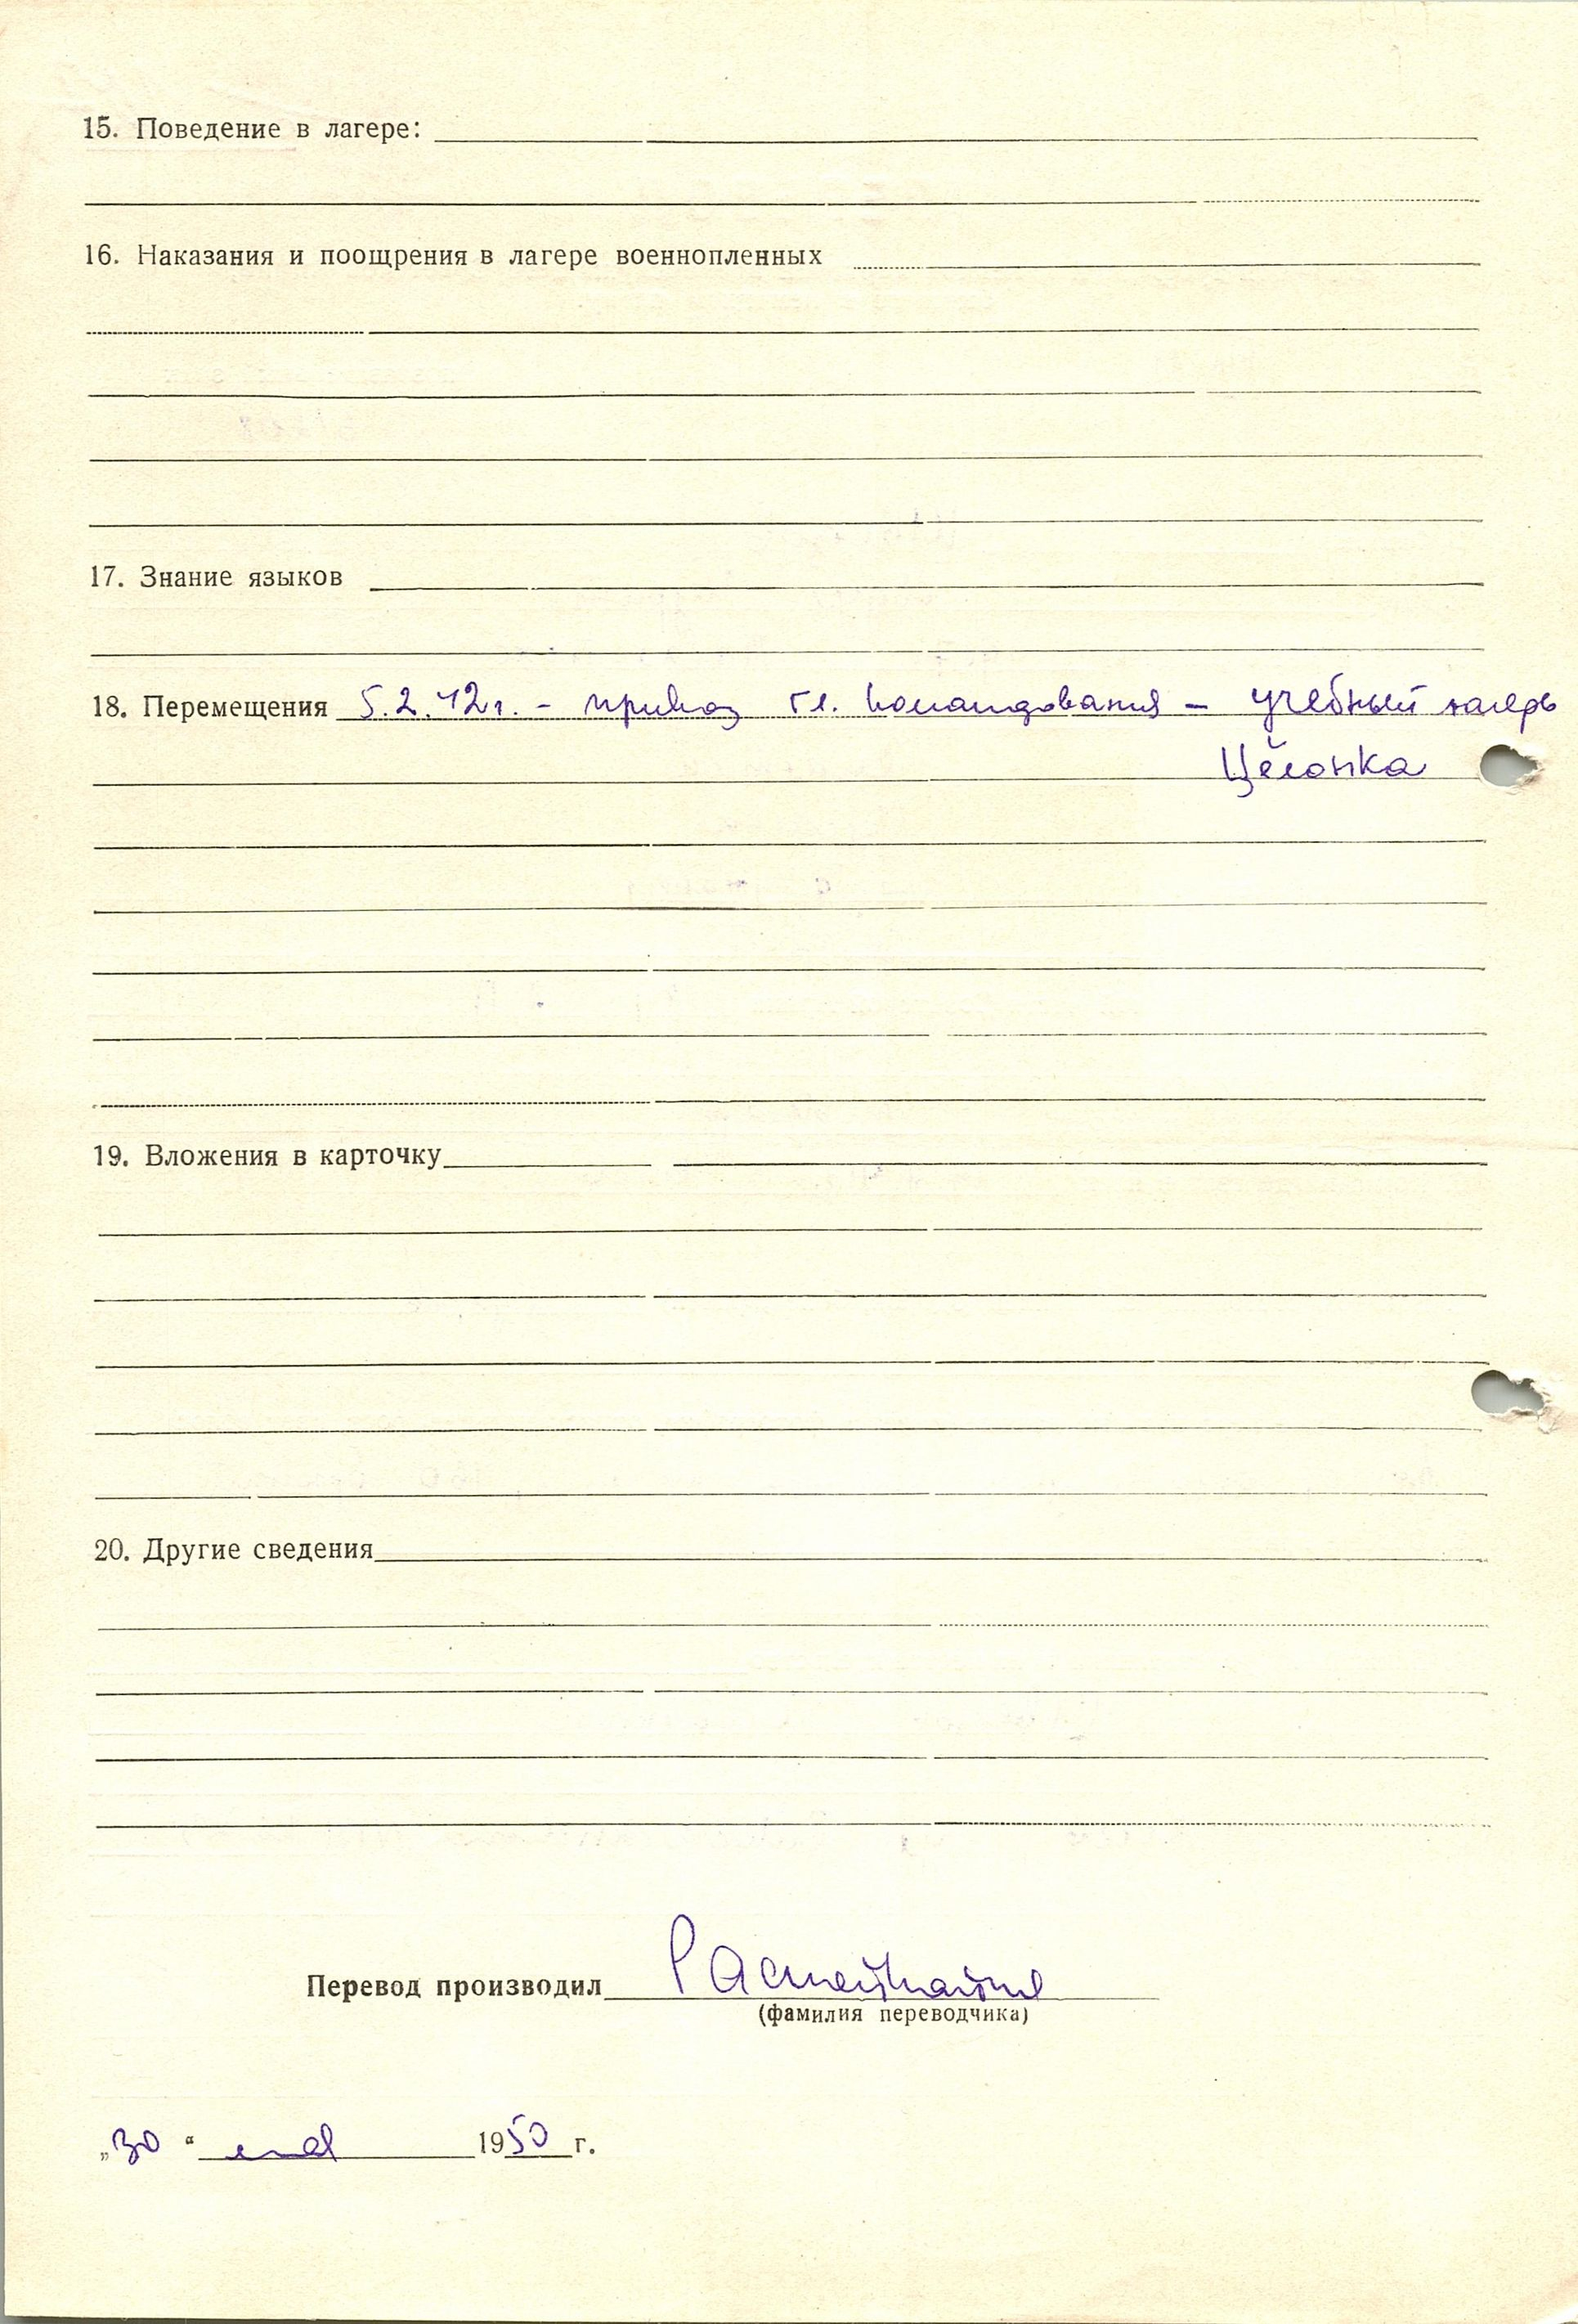 15. Поведение в лагере:
16. Наказания и поощрения в лагере военнопленных
17. Знание языков
18. Перемещения 5.2.42г. – приказ гл. командования – учебный лагерь
Цёлонка
19. Вложения в карточку
20. Другие сведения
Перевод производил
(фамилия переводчика)
„30“ мая 1950 г.